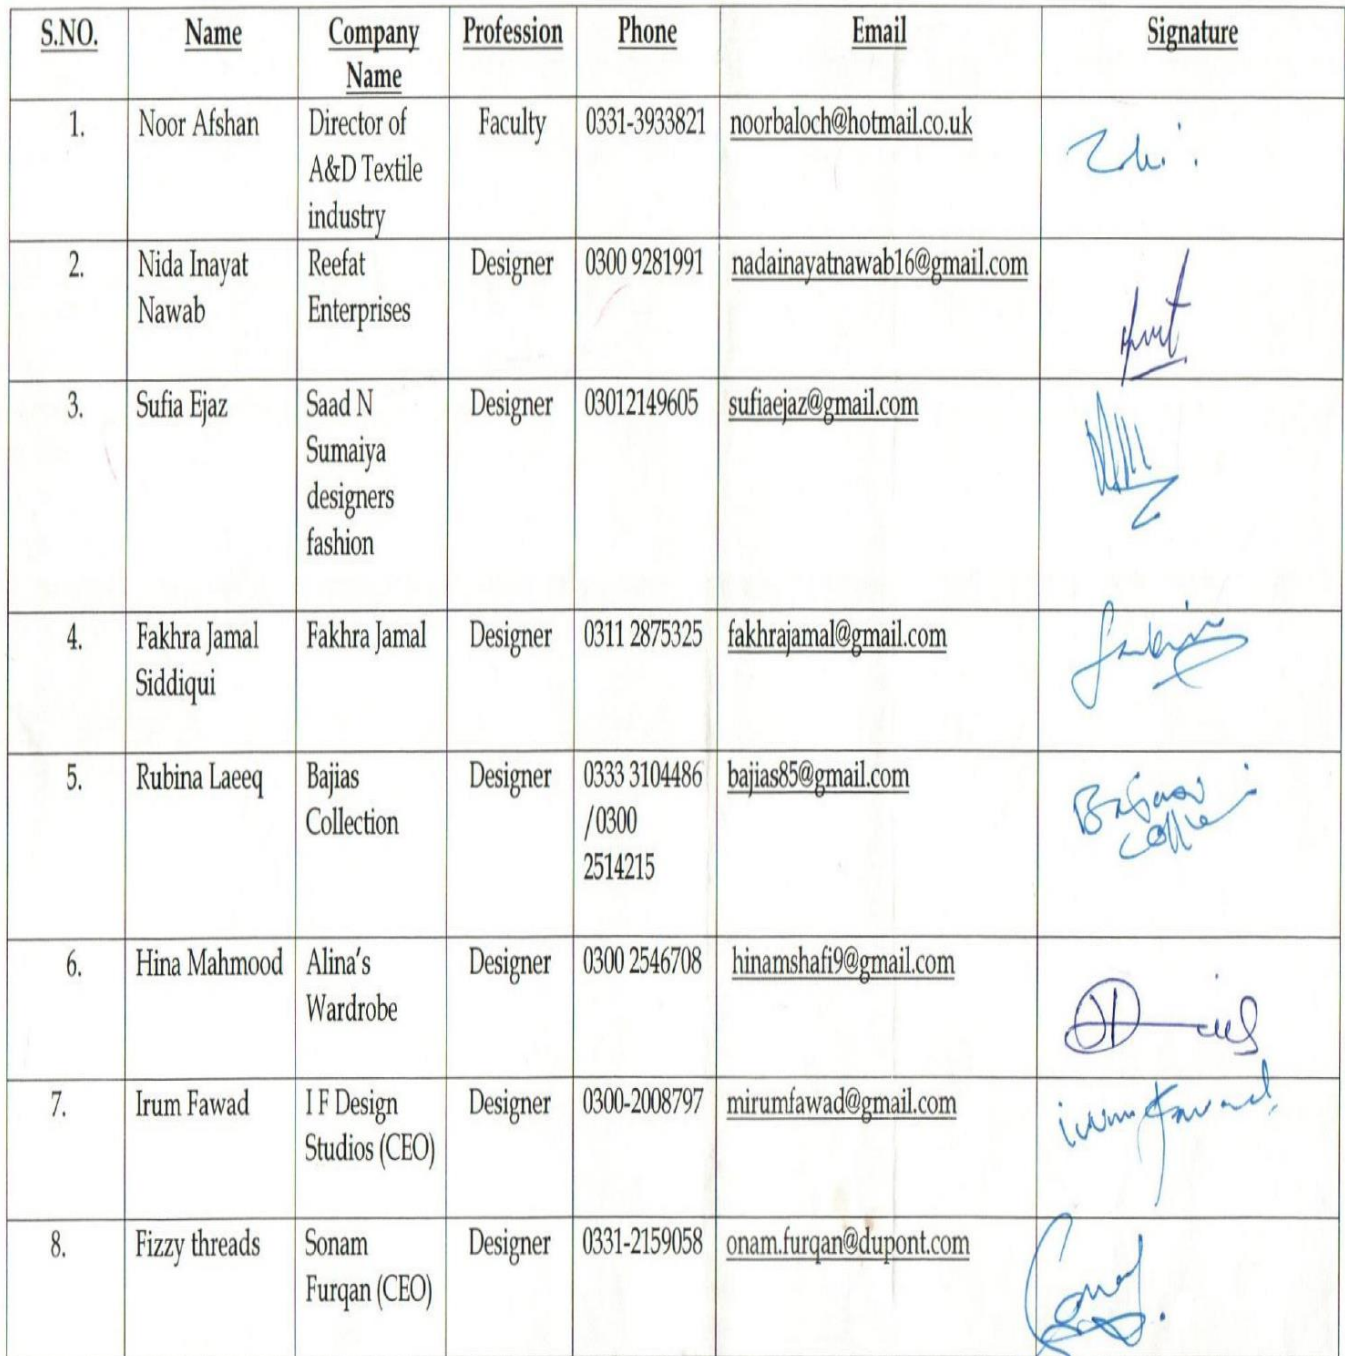 S.NO. Name Company Name Profession Phone Email Signature
1. Noor Afshan Director of A&D Textile industry Faculty 0331-3933821 noorbaloch@hotmail.co.uk
2. Nida Inayat Nawab Reefat Enterprises Designer 0300 9281991 nadainayatnawab16@gmail.com
3. Sufia Ejaz Saad N Sumaiya designers fashion Designer 03012149605 sufiaejaz@gmail.com
4. Fakhra Jamal Siddiqui Fakhra Jamal Designer 0311 2875325 fakhrajamal@gmail.com
5. Rubina Laeeq Bajias Collection Designer 0333 3104486 /0300 2514215 bajias85@gmail.com
6. Hina Mahmood Alina's Wardrobe Designer 0300 2546708 hinamshafi9@gmail.com
7. Irum Fawad I F Design Studios (CEO) Designer 0300-2008797 mirumfawad@gmail.com irum fawad
8. Fizzy threads Sonam Furqan (CEO) Designer 0331-2159058 onam.furqan@dupont.com